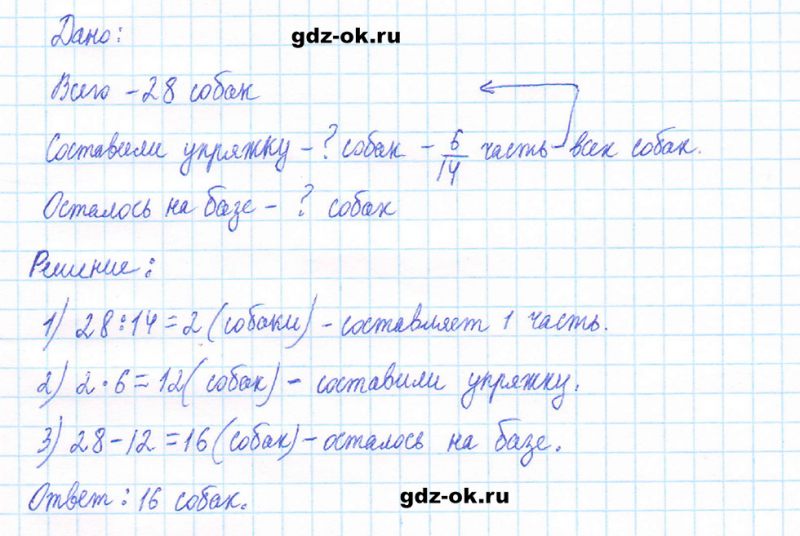 Дано: gdz-ok.ru
Всего - 28 собак
Составили упряжку - ? собак - 6/14 часть всех собак.
Осталось на базе - ? собак
Решение:
1) 28:14=2 (собаки) - составляет 1 часть.
2) 2·6=12 (собак) - составили упряжку.
3) 28-12=16 (собак) - осталось на базе.
Ответ: 16 собак. gdz-ok.ru